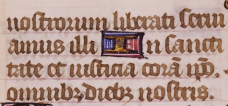 nostrorum liberati serui
amus illi In sancti
tate et iusticia corā ipō.
omnibz diebz nostris.